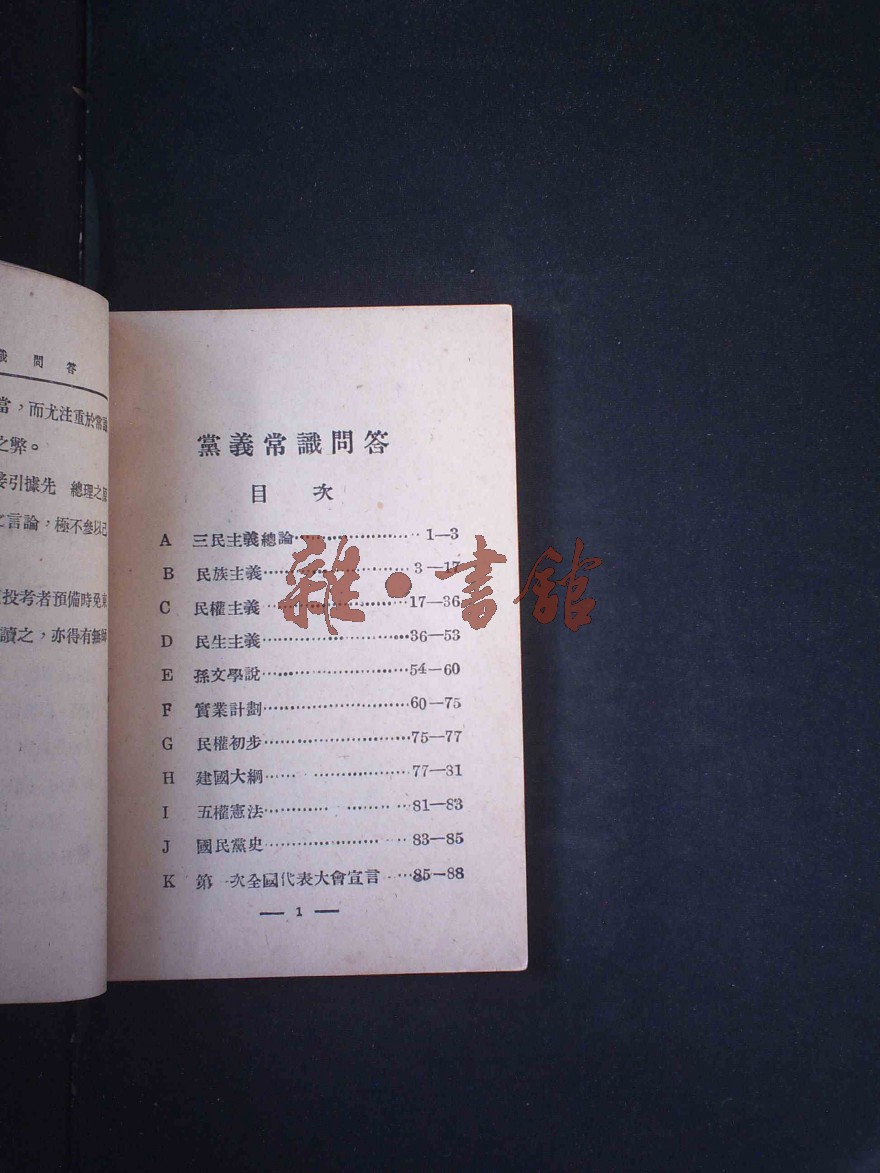 問答
當，而尤注重於常識
之弊。
接引據先 總理之
之言論，極不參以己
投考者預備時免東
讀之，亦得有無師
黨義常識問答
目 次
A 三民主義總論 1—3
B 民族主義 3—17
C 民權主義 17—36
D 民生主義 36—53
E 孫文學說 54—60
F 實業計劃 60—75
G 民權初步 75—77
H 建國大綱 77—81
I 五權憲法 81—83
J 國民黨史 83—85
K 第一次全國代表大會宣言 85—88
— 1 —
雜·書館